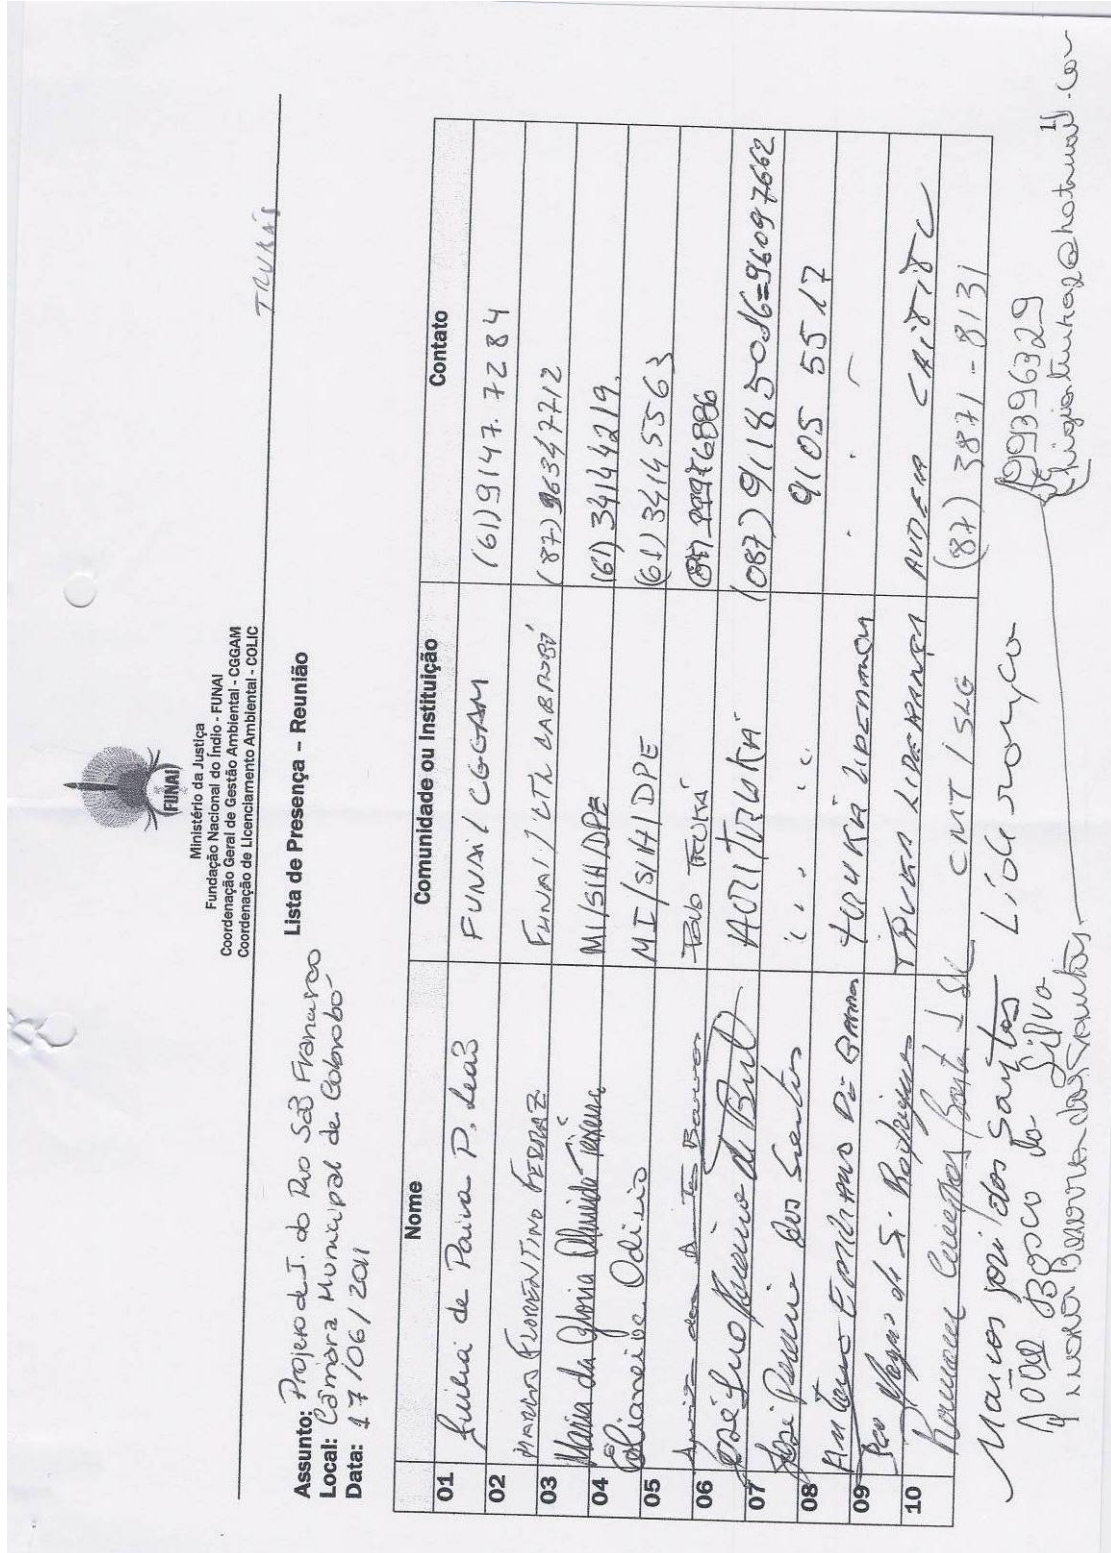 (FUNAI)
Ministério da Justiça
Fundação Nacional do Índio - FUNAI
Coordenação Geral de Gestão Ambiental - CGGAM
Coordenação de Licenciamento Ambiental - COLIC
TRUKÁS
Lista de Presença – Reunião
Assunto: Projeto de I. do Rio São Francisco
Local: Câmara Municipal de Cabrobó
Data: 17/06/2011
Nome Comunidade ou Instituição Contato
01 Júlia de Paiva P. Leão FUNAI/CGGAM (61)9147.7284
02 MARCOS FLORENTINO FERRAZ FUNAI/CTL CABROBÓ (87)96347712
03 Maria da Gloria Almeida Teixeira MI/SIH/DPE (61)34144219.
04 Elianeiba Odisio MI/SIH/DPE (61)34145563
05 dos Povo TRUKÁ
06 José Luno Pereira de TRUKÁ (087)91185086=96097662
07 José Pereira dos Santos " " " " 9105 5517
08 Antônio EMILIANO DA GAMA TRUKÁ LIDERANÇA
09 de S. Rodrigues TRUKA LIDERANÇA ALDEIA
10 CMT/SLG (87) 3871-8131
Marcos José dos Santos Liderança
João Bosco da Silva 99396329
Bezerra dos Santos @hotmail.com